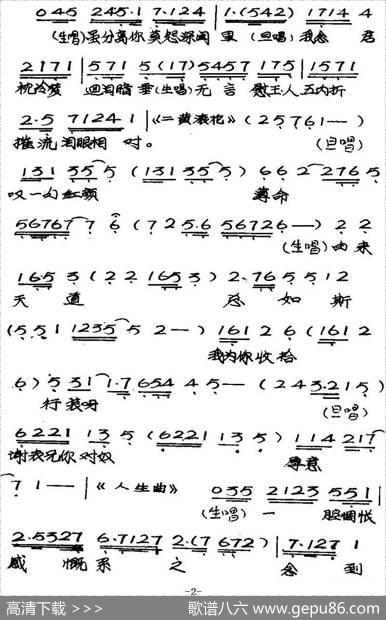 0 4 5 2 4 5·1 7·1 2 4 | 1·(5 4 2) 1 7 1 4 4
(生唱)虽分离你莫怨深闺里 (旦唱)我念君
2 1 7 1 | 5 7 1 5 (1 7) 5 4 5 7 1 7 5 | 1 5 7 1
枕冷 泪暗垂(生唱)无言慰玉人五内折
2·5 7 1 2 4 1 | 《二黄滚花》 (2 5 7 6 1 —)
摧流泪眼相对。 (旦唱)
1 3 1 3 5 5 (1 3 1 3 5 5) 6 6 2 2 7 6 5
叹一句红颜 薄命
5 6 7 6 7 7 6 (7 2 5·6 5 6 7 2 6 —) 2 2
(生唱)由来
1 6 5 3 (2 2 1 6 5 3) 2·7 6 5 5 1 2
天道 总如斯
(5 5 1 1 2 3 5 5 2 —) 1 6 1 2 6 (1 6 1 2
我为你收拾
6) 5 3 1 1·7 6 5 4 4 5 — (2 4 3·2 1 5)
行装呀 (旦唱)
6 2 2 1 1 3 5 (6 2 2 1 1 3 5) 1 1 4 2 1 7
谢表兄你对奴 尊意
7 1 — | 《人生曲》 0 3 5 2 1 2 3 5 5 1 |
(生唱)一腔惆怅
2·5 3 2 7 6·7 1 2 7 2·(7 6 7 2) | 7·1 2 7 1
感慨系之 念到
-2-
高清下载 >>>
歌谱八六 www.gepu86.com